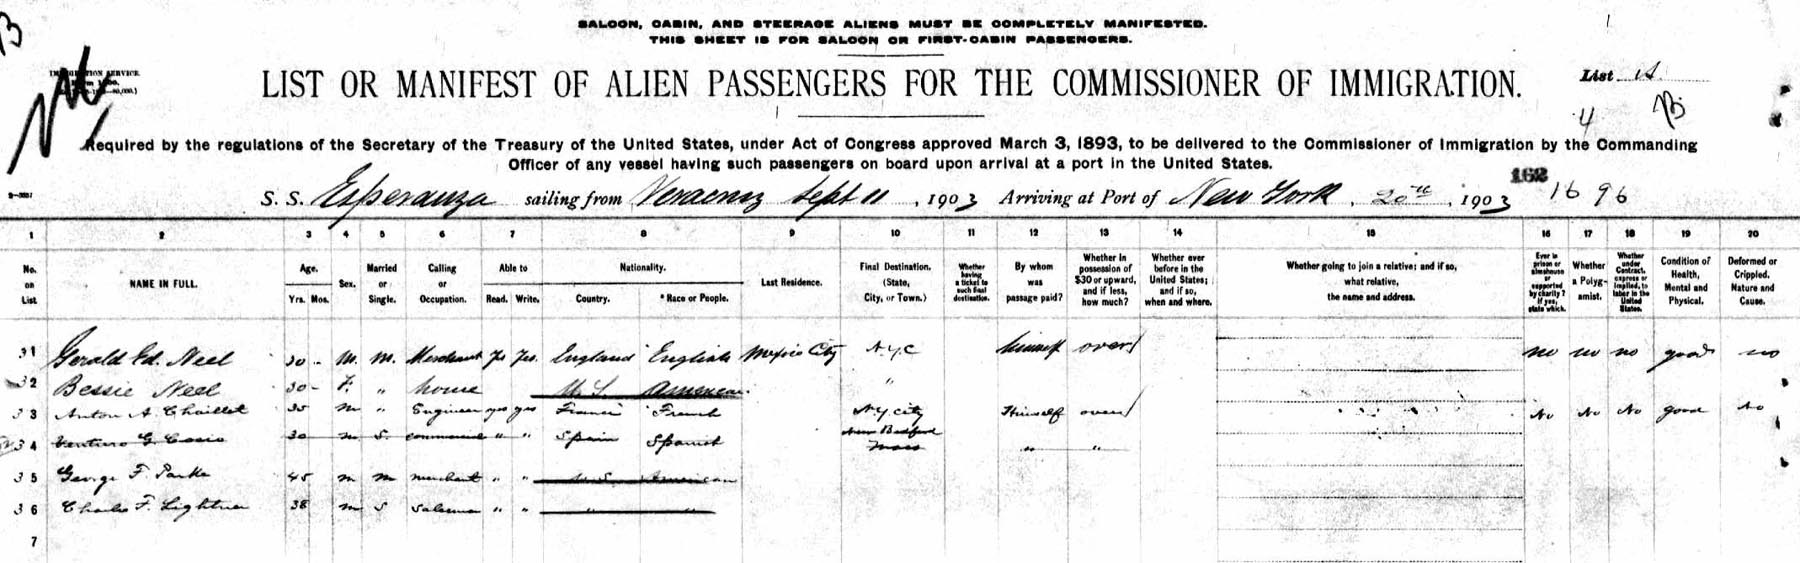 SALOON, CABIN, AND STEERAGE ALIENS MUST BE COMPLETELY MANIFESTED.
THIS SHEET IS FOR SALOON OR FIRST-CABIN PASSENGERS.
IMMIGRATION SERVICE.
LIST OR MANIFEST OF ALIEN PASSENGERS FOR THE COMMISSIONER OF IMMIGRATION.
List A.
4
Required by the regulations of the Secretary of the Treasury of the United States, under Act of Congress approved March 3, 1893, to be delivered to the Commissioner of Immigration by the Commanding
Officer of any vessel having such passengers on board upon arrival at a port in the United States.
162
S. S. Esperanza sailing from Veracruz Sept 11, 1903 Arriving at Port of New York, 20th, 1903 16 96
1 2 3 4 5 6 7 8 9 10 11 12 13 14 15 16 17 18 19 20
No. on List
NAME IN FULL.
Age. Yrs. Mos.
Sex.
Married or Single.
Calling or Occupation.
Able to Read. Write.
Nationality. Country. *Race or People.
Last Residence.
Final Destination. (State, City, or Town.)
Whether having a ticket to such final destination.
By whom was passage paid?
Whether in possession of $30 or upward, and if less, how much?
Whether ever before in the United States; and if so, when and where.
Whether going to join a relative; and if so, what relative, the name and address.
Ever in prison or almshouse or supported by charity? If yes, state which.
Whether a Polygamist.
Whether under Contract, express or implied, to labor in the United States.
Condition of Health, Mental and Physical.
Deformed or Crippled. Nature and Cause.
31 Gerald Ed. Neel 30 - M. M. Merchant yes yes. England English Mexico City N.Y.C himself over no no no good no
32 Bessie Neel 30 - F. " house U.S. American "
33 Anton A. Chaillet 35 m " Engineer yes yes France French N.Y. city Himself over No No No good No
34 Venturo G Cosio 30 m S. " " Spain Spanish New Bedford Mass " "
35 George F. Parke 45 m m merchant " " U.S. American
36 Charles F. Lightner 38 m S Salesman " " " "
7